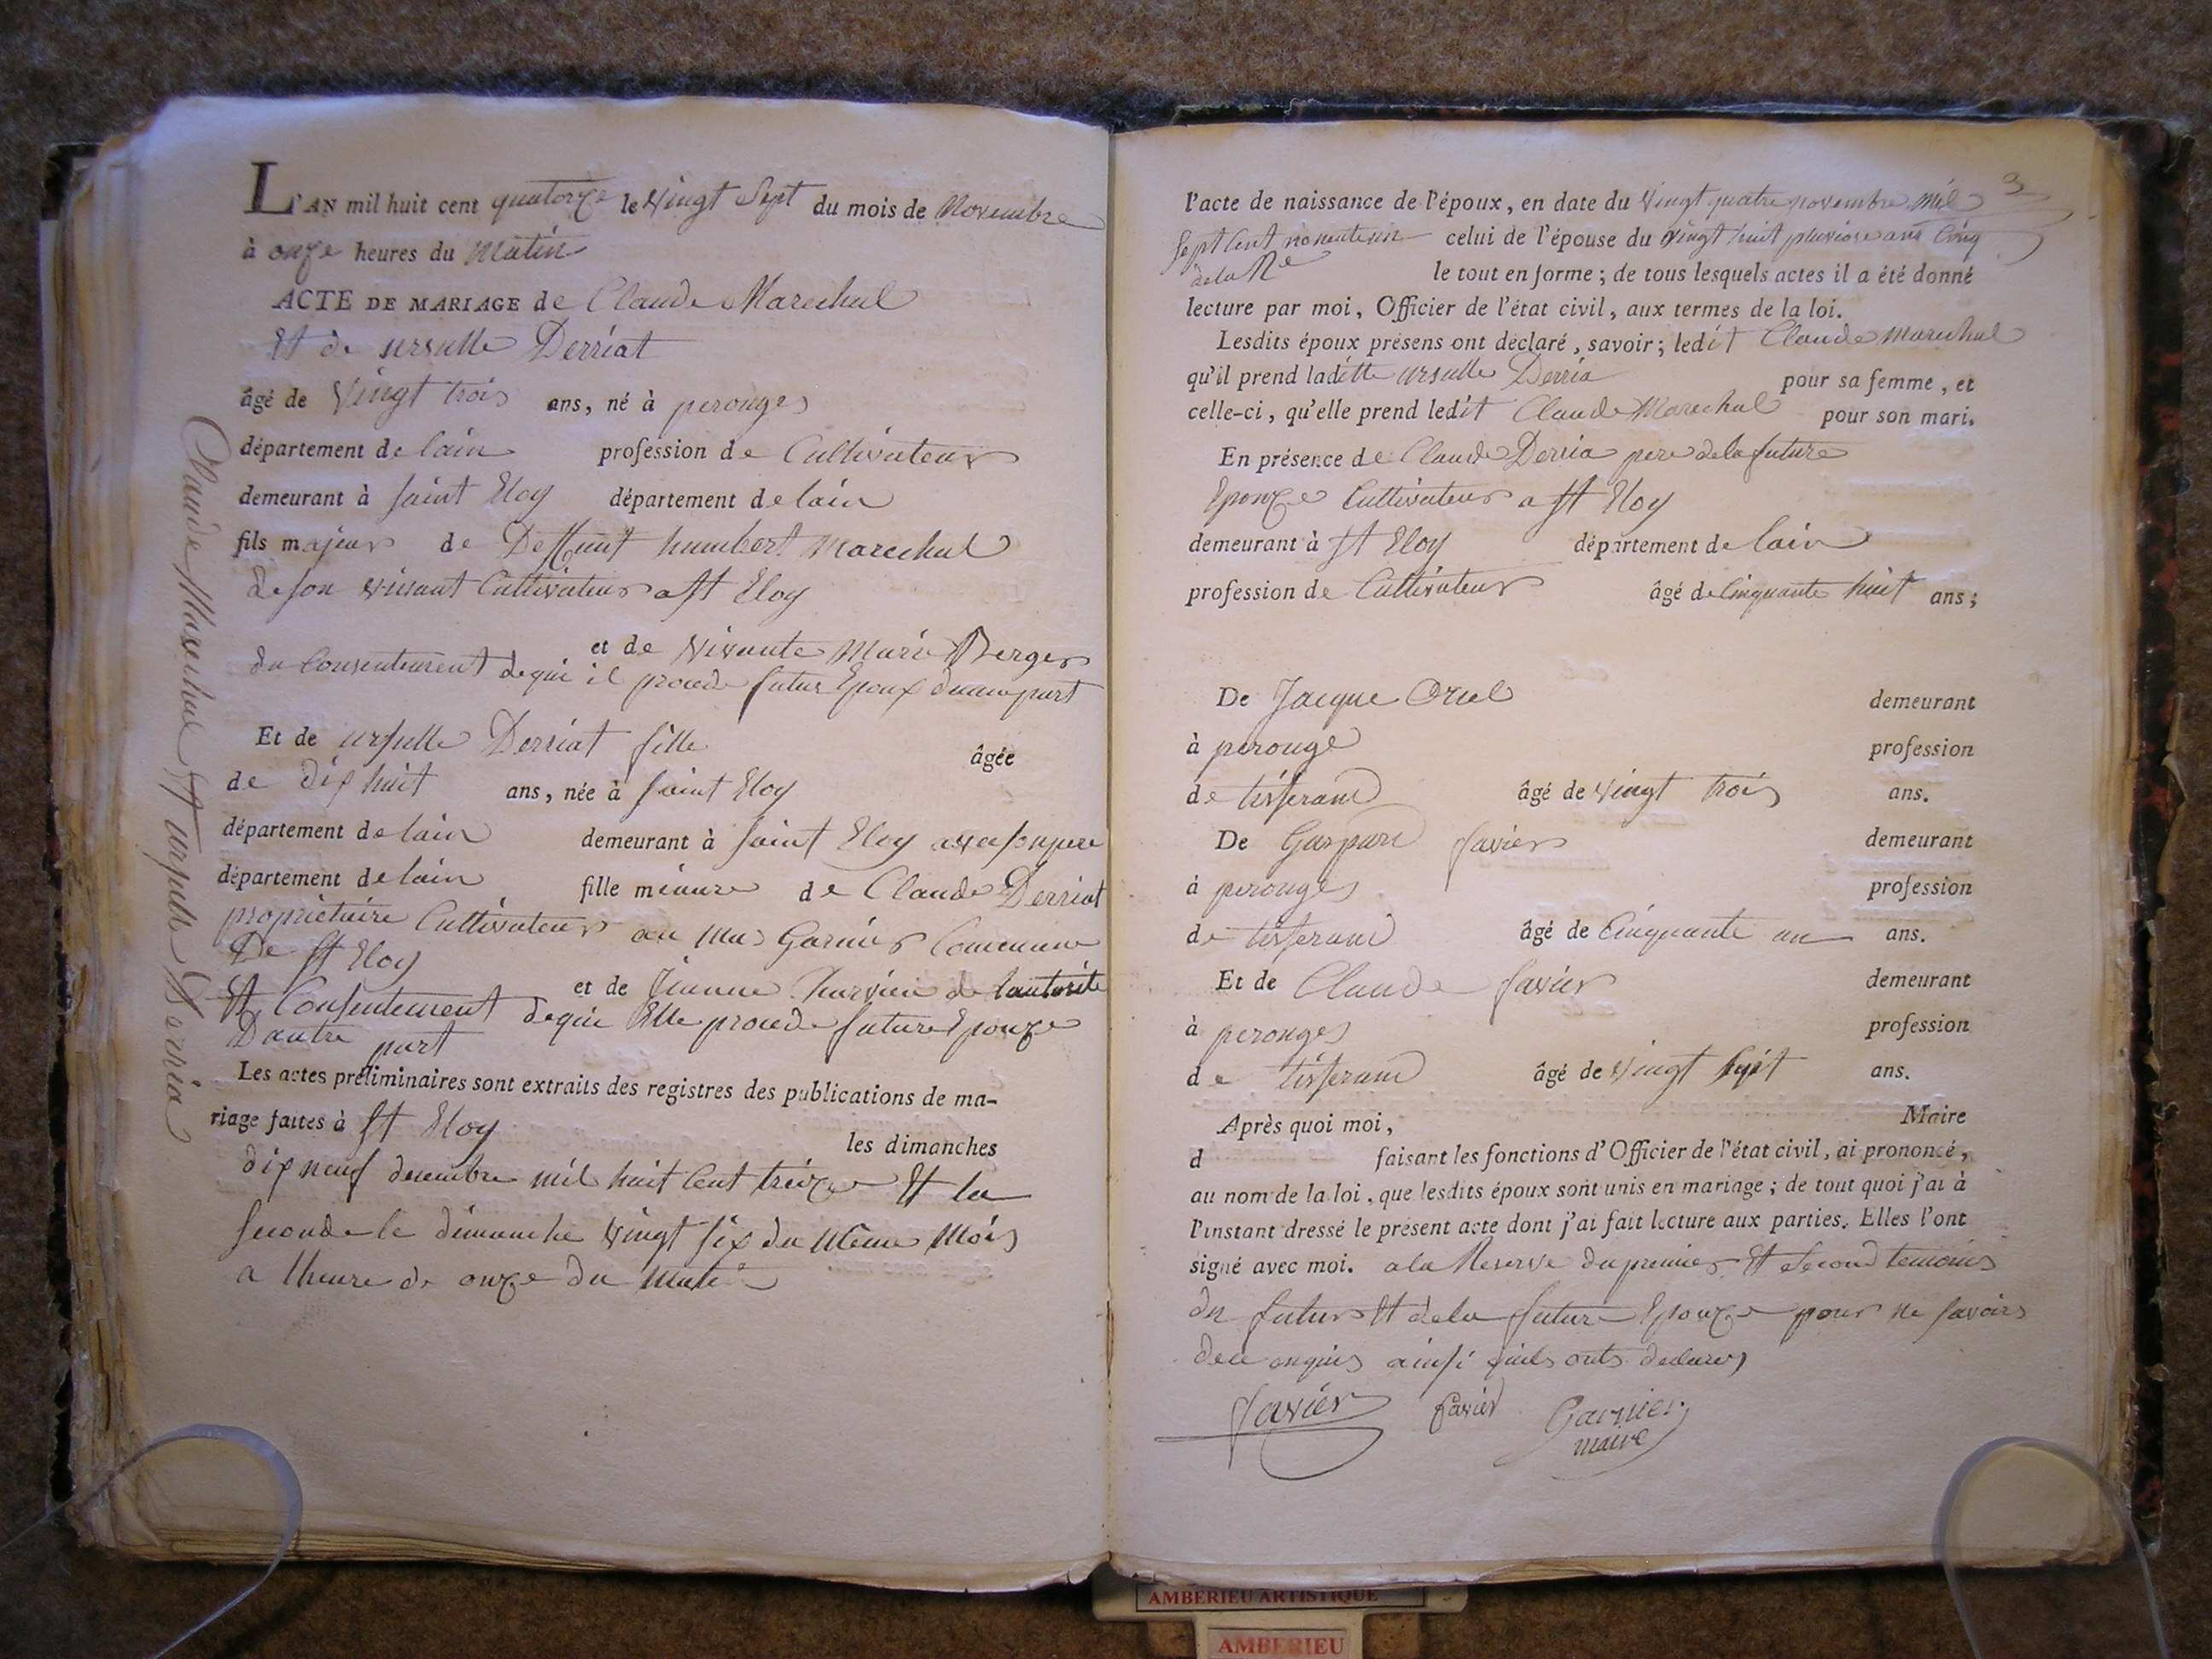 L'AN mil huit cent quatorze le vingt Sept du mois de Novembre
à onze heures du Matin
ACTE DE MARIAGE de Claude Marechal
Et de ursulle Derriat
âgé de vingt trois ans, né à perouges
département de lain profession de Cultivateur
demeurant à saint Eloy département de lain
fils majeur de Deffunt humbert Marechal
de son vivant Cultivateur a St Eloy
et de vivante Marie Berger
du Consentement de qui il procede futur Epoux dunne part
Et de ursulle Derriat fille âgée
de dix huit ans, née à saint Eloy
département de lain demeurant à saint Eloy avec son pere
département de lain fille mineure de Claude Derriat
propriétaire Cultivateur au Mas Garnier Commune
De St Eloy
et de Jeanne de lautorité
Et Consentement de qui Elle procede future Epouze
Dautre part
Les actes préliminaires sont extraits des registres des publications de ma-
riage faites à St Eloy les dimanches
dix neuf decembre mil huit Cent treize Et la
seconde le dimanche vingt six du Même Mois
a lheure de onze du Matin
Claude Marechal Et ursulle Derria
3
l'acte de naissance de l'époux, en date du vingt quatre novembre mil
sept Cent nonente un celui de l'épouse du vingt huit pluviose ans Cinq
de la Re le tout en forme ; de tous lesquels actes il a été donné
lecture par moi, Officier de l'état civil, aux termes de la loi.
Lesdits époux présens ont déclaré, savoir ; ledit Claude Marechal
qu'il prend laditte ursulle Derria pour sa femme, et
celle-ci, qu'elle prend ledit Claude Marechal pour son mari.
En présence de Claude Derria pere de la future
Epouze Cultivateur a St Eloy
demeurant à St Eloy département de lain
profession de Cultivateur âgé de Cinquante huit ans ;
De Jacque Oruel demeurant
à perouge profession
de tisserand âgé de vingt trois ans.
De Gaspard favier demeurant
à perouges profession
de tisserand âgé de Cinquante un ans.
Et de Claude favier demeurant
à perouges profession
de tisserand âgé de vingt ans.
Après quoi moi, Maire
d faisant les fonctions d'Officier de l'état civil, ai prononcé,
au nom de la loi, que lesdits époux sont unis en mariage ; de tout quoi j'ai à
l'instant dressé le présent acte dont j'ai fait lecture aux parties. Elles l'ont
signé avec moi. a la Reserve du premier Et second temoins
du futur Et de la future Epouze pour ne savoir
de ce enquis ainsi quils onts declares
favier favier Garnier
maire
AMBERIEU ARTISTIQUE
AMBERIEU